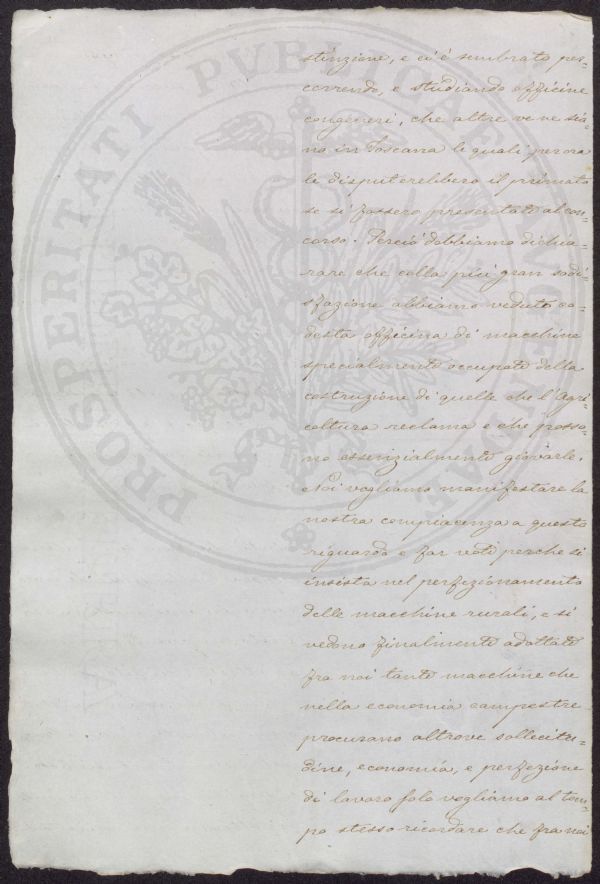 PROSPERITATI PVBLICAE AVGENDAE
stinzione, e ci è sembrato per=
correndo, e studiando officine
congeneri, che altre ve ne sia=
no in Toscana le quali per ora
le disputerebbero il primato
se si fossero presentate al con=
corso. Perciò dobbiamo dichia=
rare che colla più gran sodi=
sfazione abbiamo veduto co=
desta officina di macchine
specialmente occupata della
costruzione di quelle che l'Agri=
coltura reclama e che posso=
no essenzialmente giovarle.
Noi vogliamo manifestare la
nostra compiacenza a questo
riguardo e far voti perche si
insista nel perfezionamento
delle macchine rurali, e si
vedano finalmente adottate
fra noi tante macchine che
nella economia campestre
procurano altrove sollecitu=
dine, economia, e perfezione
di lavoro solo vogliamo al tem=
po stesso ricordare che fra noi